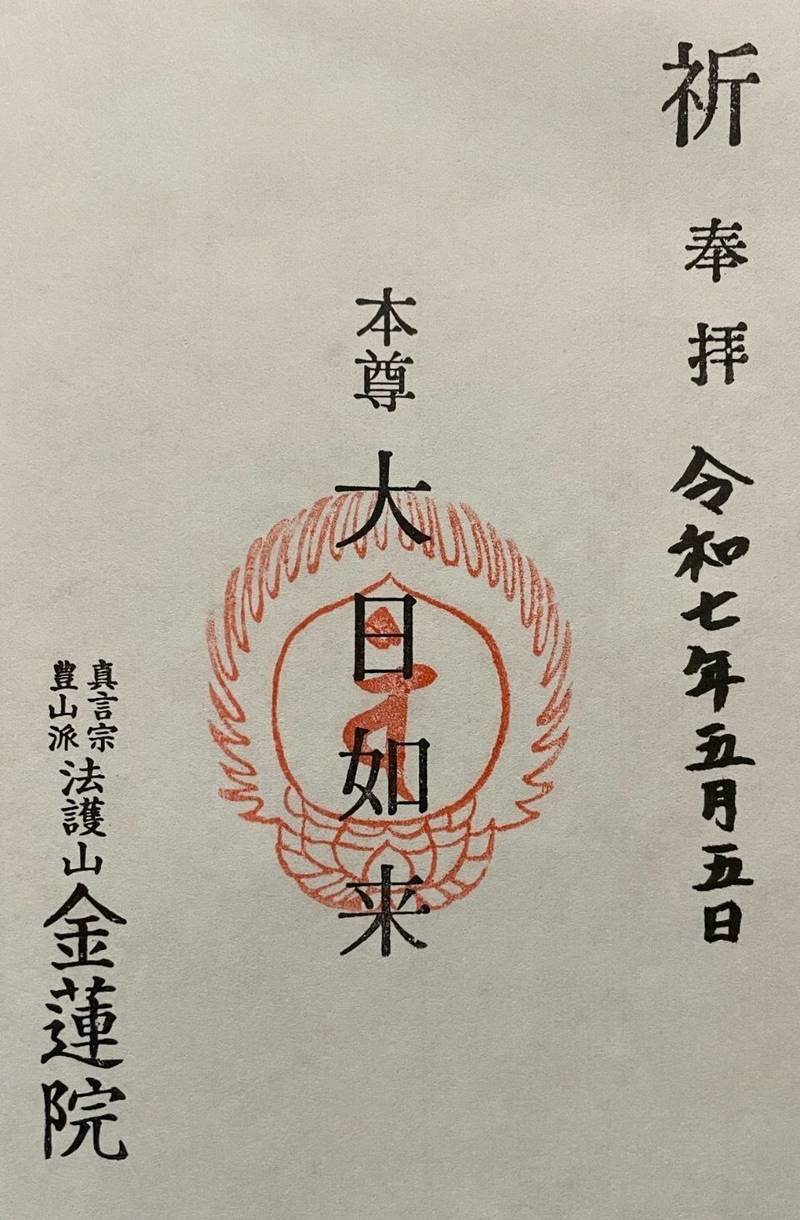 祈 奉拝 令和七年五月五日
本尊 大日如来
真言宗
豊山派
法護山 金蓮院